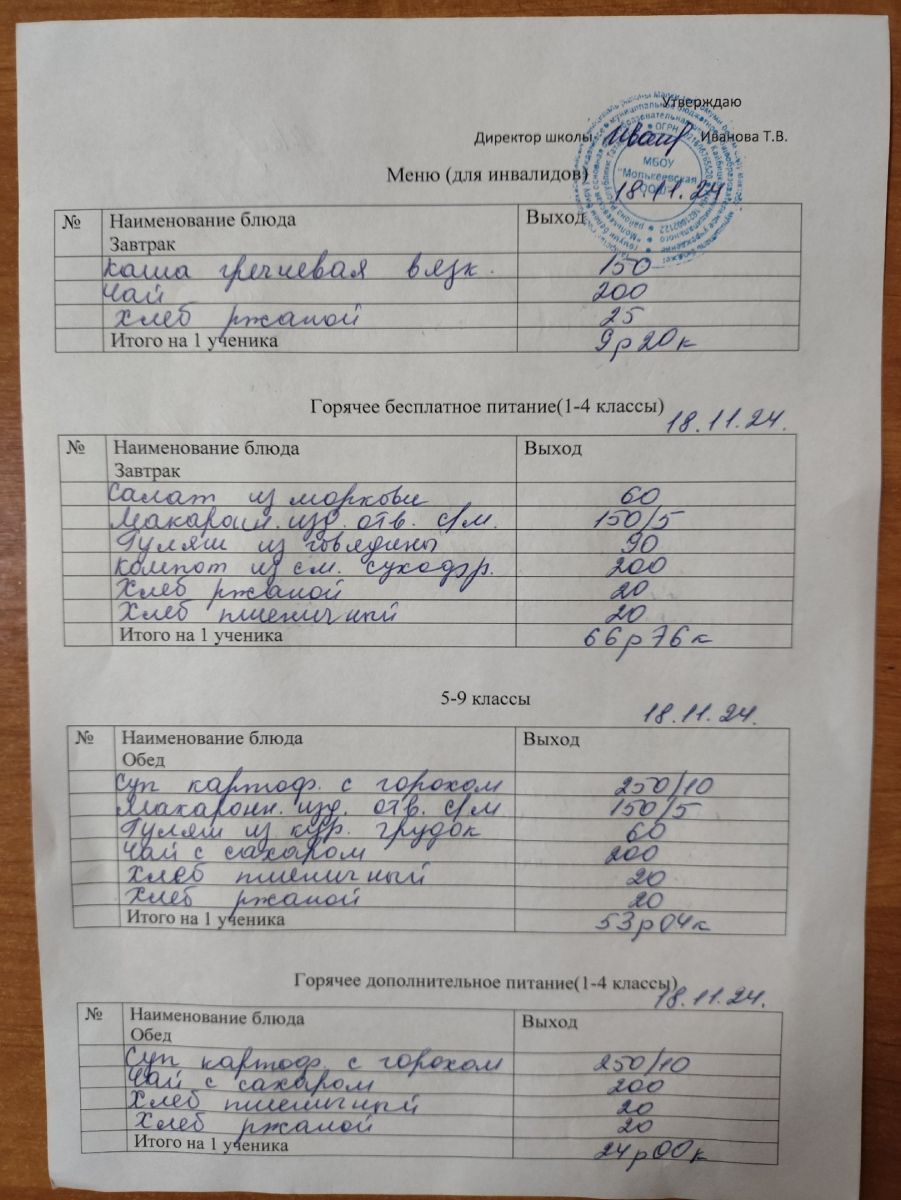 Утверждаю
Директор школы Иванова Т.В.
МБОУ
"Молькеевская
ООШ"
Меню (для инвалидов)
18.11.24
№ Наименование блюда Выход
Завтрак
Каша гречневая вязк. 150
Чай 200
Хлеб ржаной 25
Итого на 1 ученика 9р20к
Горячее бесплатное питание(1-4 классы)
18.11.24.
№ Наименование блюда Выход
Завтрак
Салат из моркови 60
Макаронн. изд. отв. с/м. 150/5
Гуляш из говядины 90
Компот из см. сухофр. 200
Хлеб ржаной 20
Хлеб пшеничный 20
Итого на 1 ученика 66р76к
5-9 классы
18.11.24.
№ Наименование блюда Выход
Обед
Суп картоф. с горохом 250/10
Макаронн. изд. отв. с/м 150/5
Гуляш из кур. грудок 60
Чай с сахаром 200
Хлеб пшеничный 20
Хлеб ржаной 20
Итого на 1 ученика 53р04к
Горячее дополнительное питание(1-4 классы)
18.11.24.
№ Наименование блюда Выход
Обед
Суп картоф. с горохом 250/10
Чай с сахаром 200
Хлеб пшеничный 20
Хлеб ржаной 20
Итого на 1 ученика 24р00к